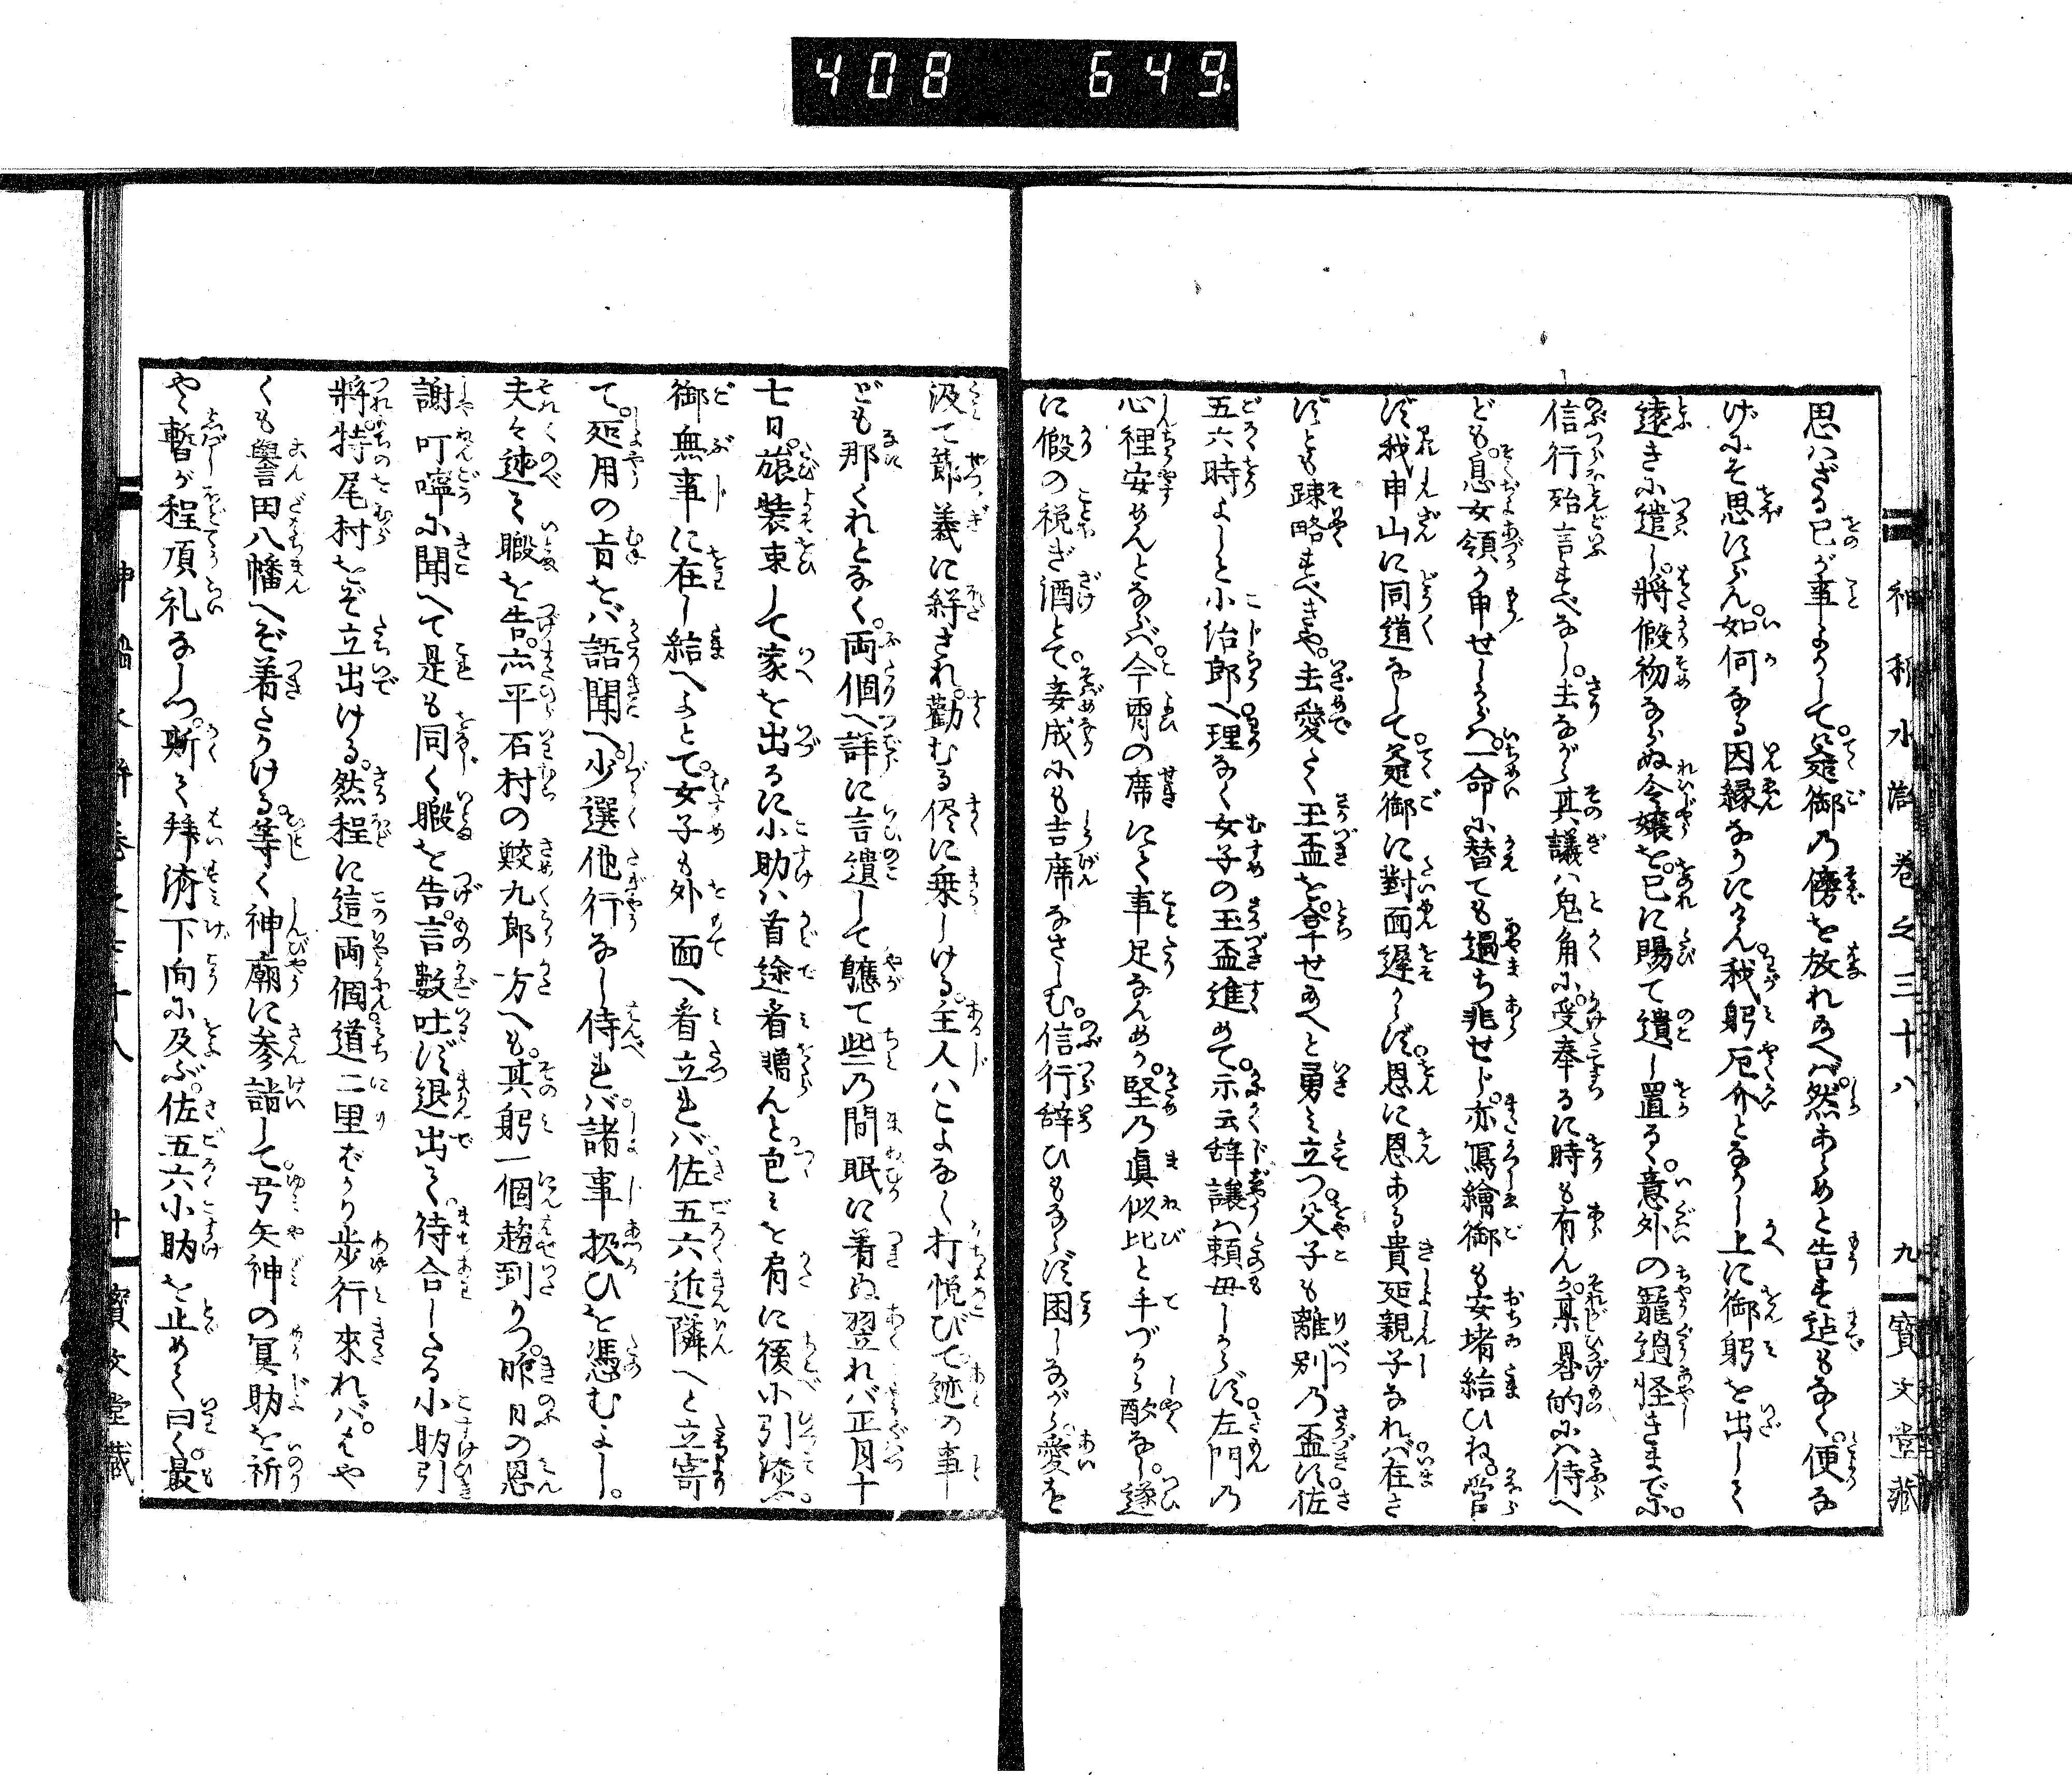 408 649
神稲水滸巻之三十八 九 寶文堂藏
思ハざる已が事よりして。爺御乃傍を放れ給へバ然あらめと告まうす迄もなく。便な
げにぞ思ハずらん。如何なる因縁なりにけん我躬厄介となりし上に御躬を出して
遠き尓遣し。將假初ならぬ令嬢を。已に賜て遺し置るゝ。意外の寵遇怪きまで尓。
信行殆言すべなし。去ながら其議ハ兎角尓受奉るに時も有んが。某晷的尓ハ侍へ
ども。息女領り申せしからハ。一命尓替ても過ち非せじ。亦寫繪御も安堵給ひね。管
ず我申山に同道なして。爺御に對面遅からず。恩に恩ある貴爺親子なれバ在さ
ずとも踈略すべきや。去愛たく玉盃を合せ給へと勇み立つ。父子も離別乃盃ず。佐
五六時よしと小治郎へ理なく女子の玉盃進めて。示云辞譲ハ頼母しからず。左門乃
心裡安めんとならバ。今霄の席にて事足なんめり。堅乃眞似比と手づから酌なし。遂
に假の祝ぎ酒とて。妾成尓も吉席なさしむ。信行辞ひもならず。困しながら。愛を
汲て節義に絆され。勸むる侭に乗しける。主人ハこよなく打悦びて。迹の事
ども那くれとなく。両個へ詳に言遺して軈て些乃間眠に着ぬ翌れバ正月十
七日。旅装束して家を出るに小助ハ首途着贈んと包ミを肩に後尓引添。
御無事に在し給へよとて。女子も外面へ着立まバ佐五六近隣へと立寄
て。疤用の旨をバ語聞へ。少選他行なし侍まバ。諸事扱ひを憑むよし。
夫々述ミ暇を告。亦平石村の鮫九郎方へも。其躬一個趨到りつ。昨日の恩
謝叮嚀尓聞へて是も同く暇を告。言數吐ず退出て。待合したる小助引
將。特尾村をぞ立出ける。然程に這両個道二里ばかり歩行來れバ。はや
くも譽田八幡へぞ着にける。等く神廟に参詣して弓矢神の冥助を祈
やゝ暫が程頂礼なしつ。斯て拜済下向尓及ぶ。佐五六小助を止めて曰く。最
十 寶文堂藏